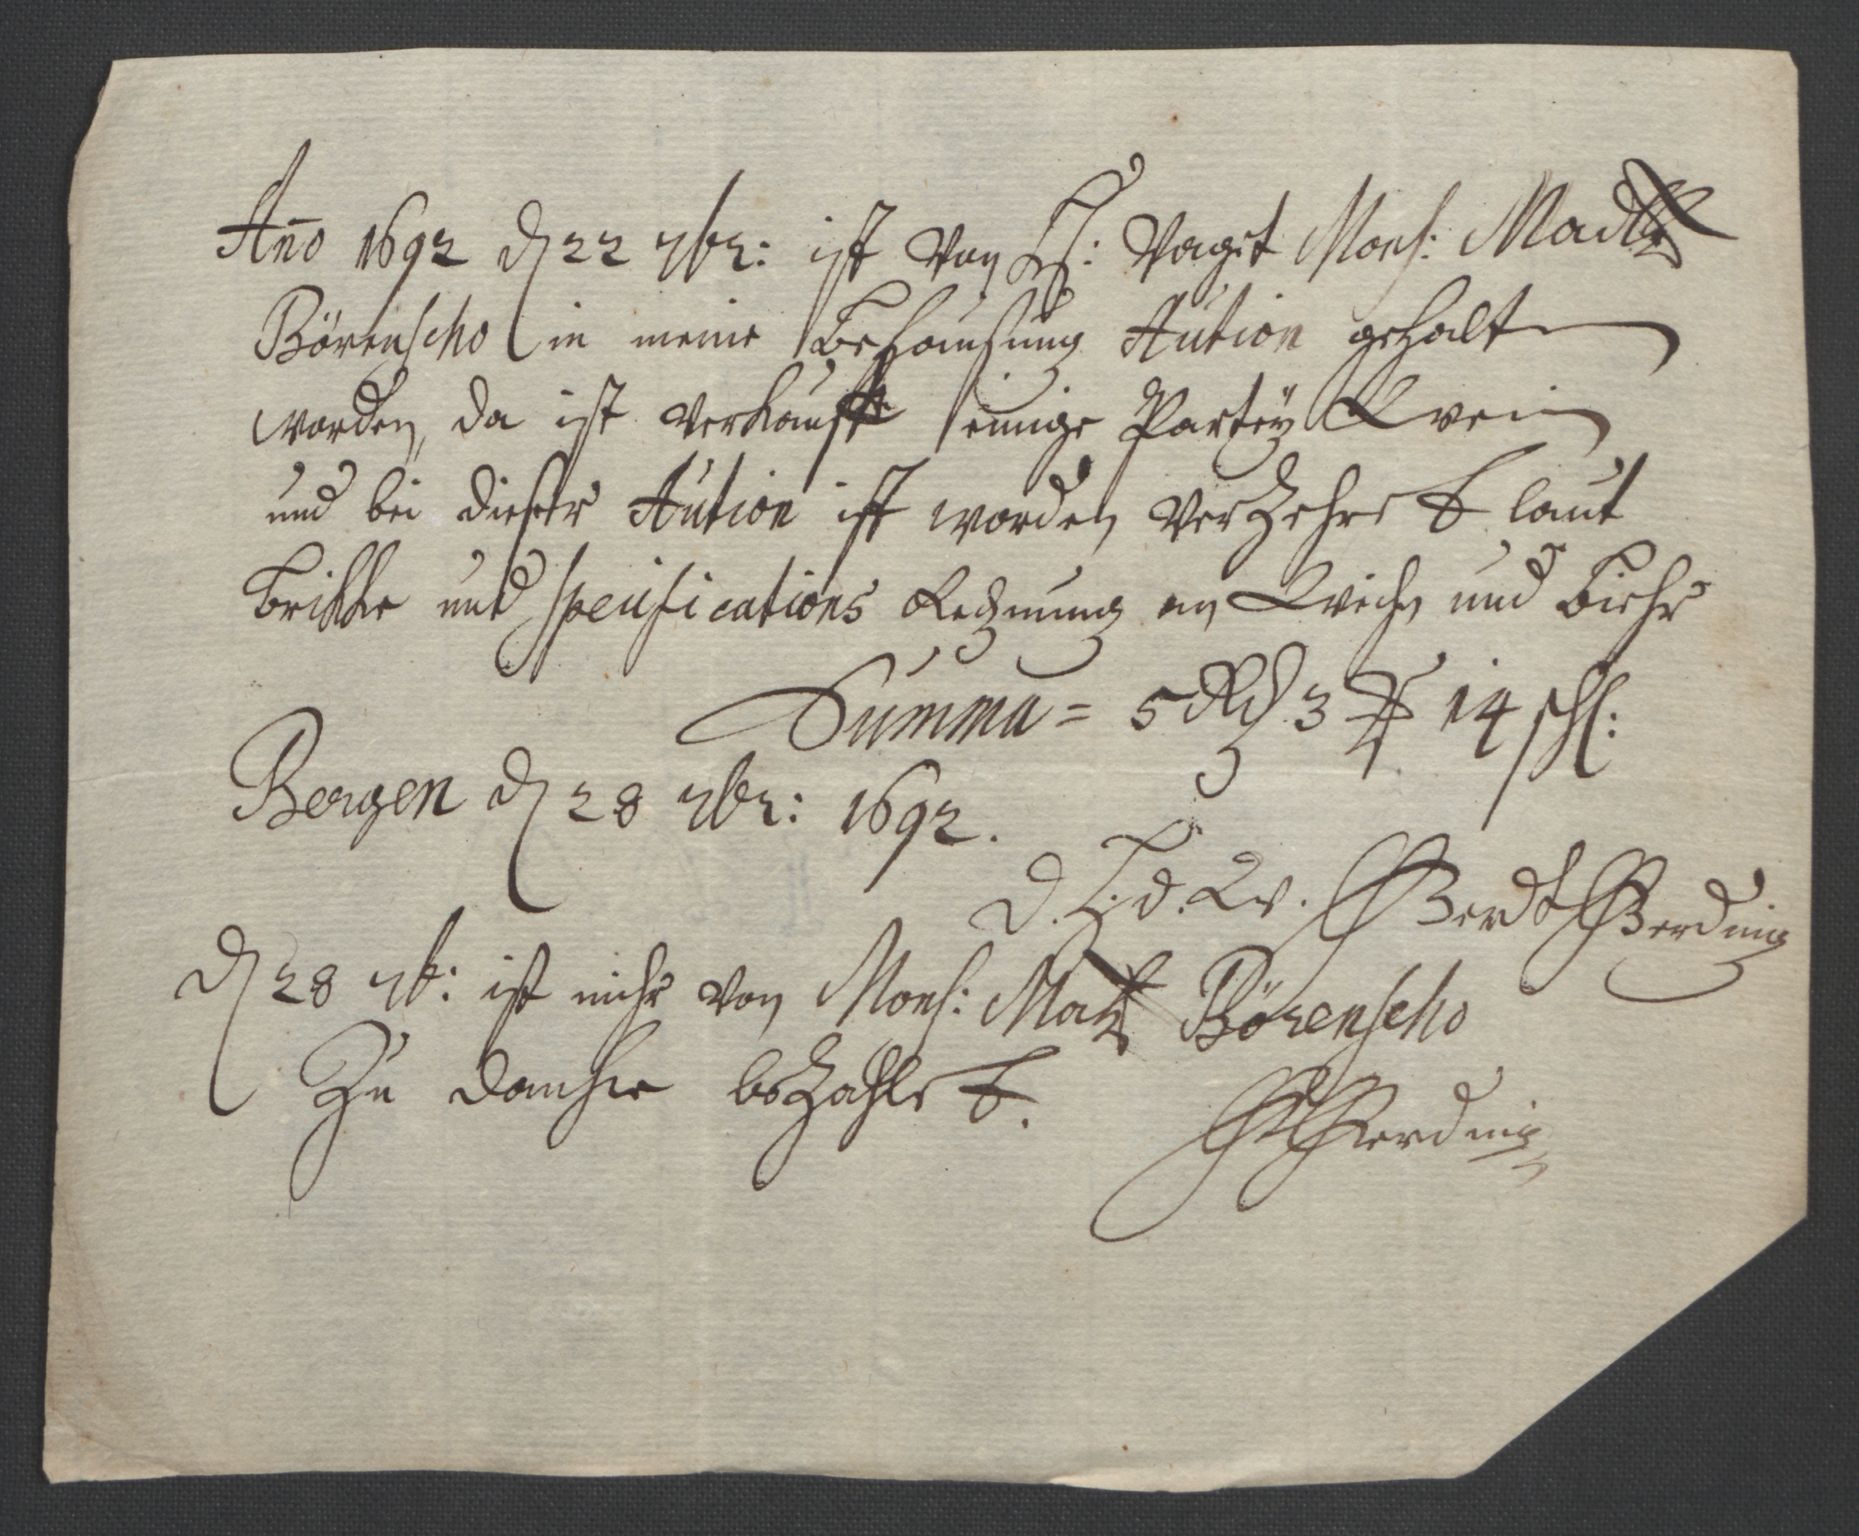 Año 1692 d 22 7br: ist von H: Vaget Mons: Madtz
Börenscho in meine Behausung Aution gehalten
worden, da ist verkaufft einige Partey Wein
und bei dieser Aution ist worden verzehret laut
Brikke und specifications Rechnung an Wein und Biehr
Summa = 5 Rd 3 14 schl:
Bergen d 28 7br: 1692.
D. H: d. W. Gerdt Gerdning
d 28 7b: ist mihr von Mons: Matz Börenscho
Zu dancke bezahlet.
G Gerdning